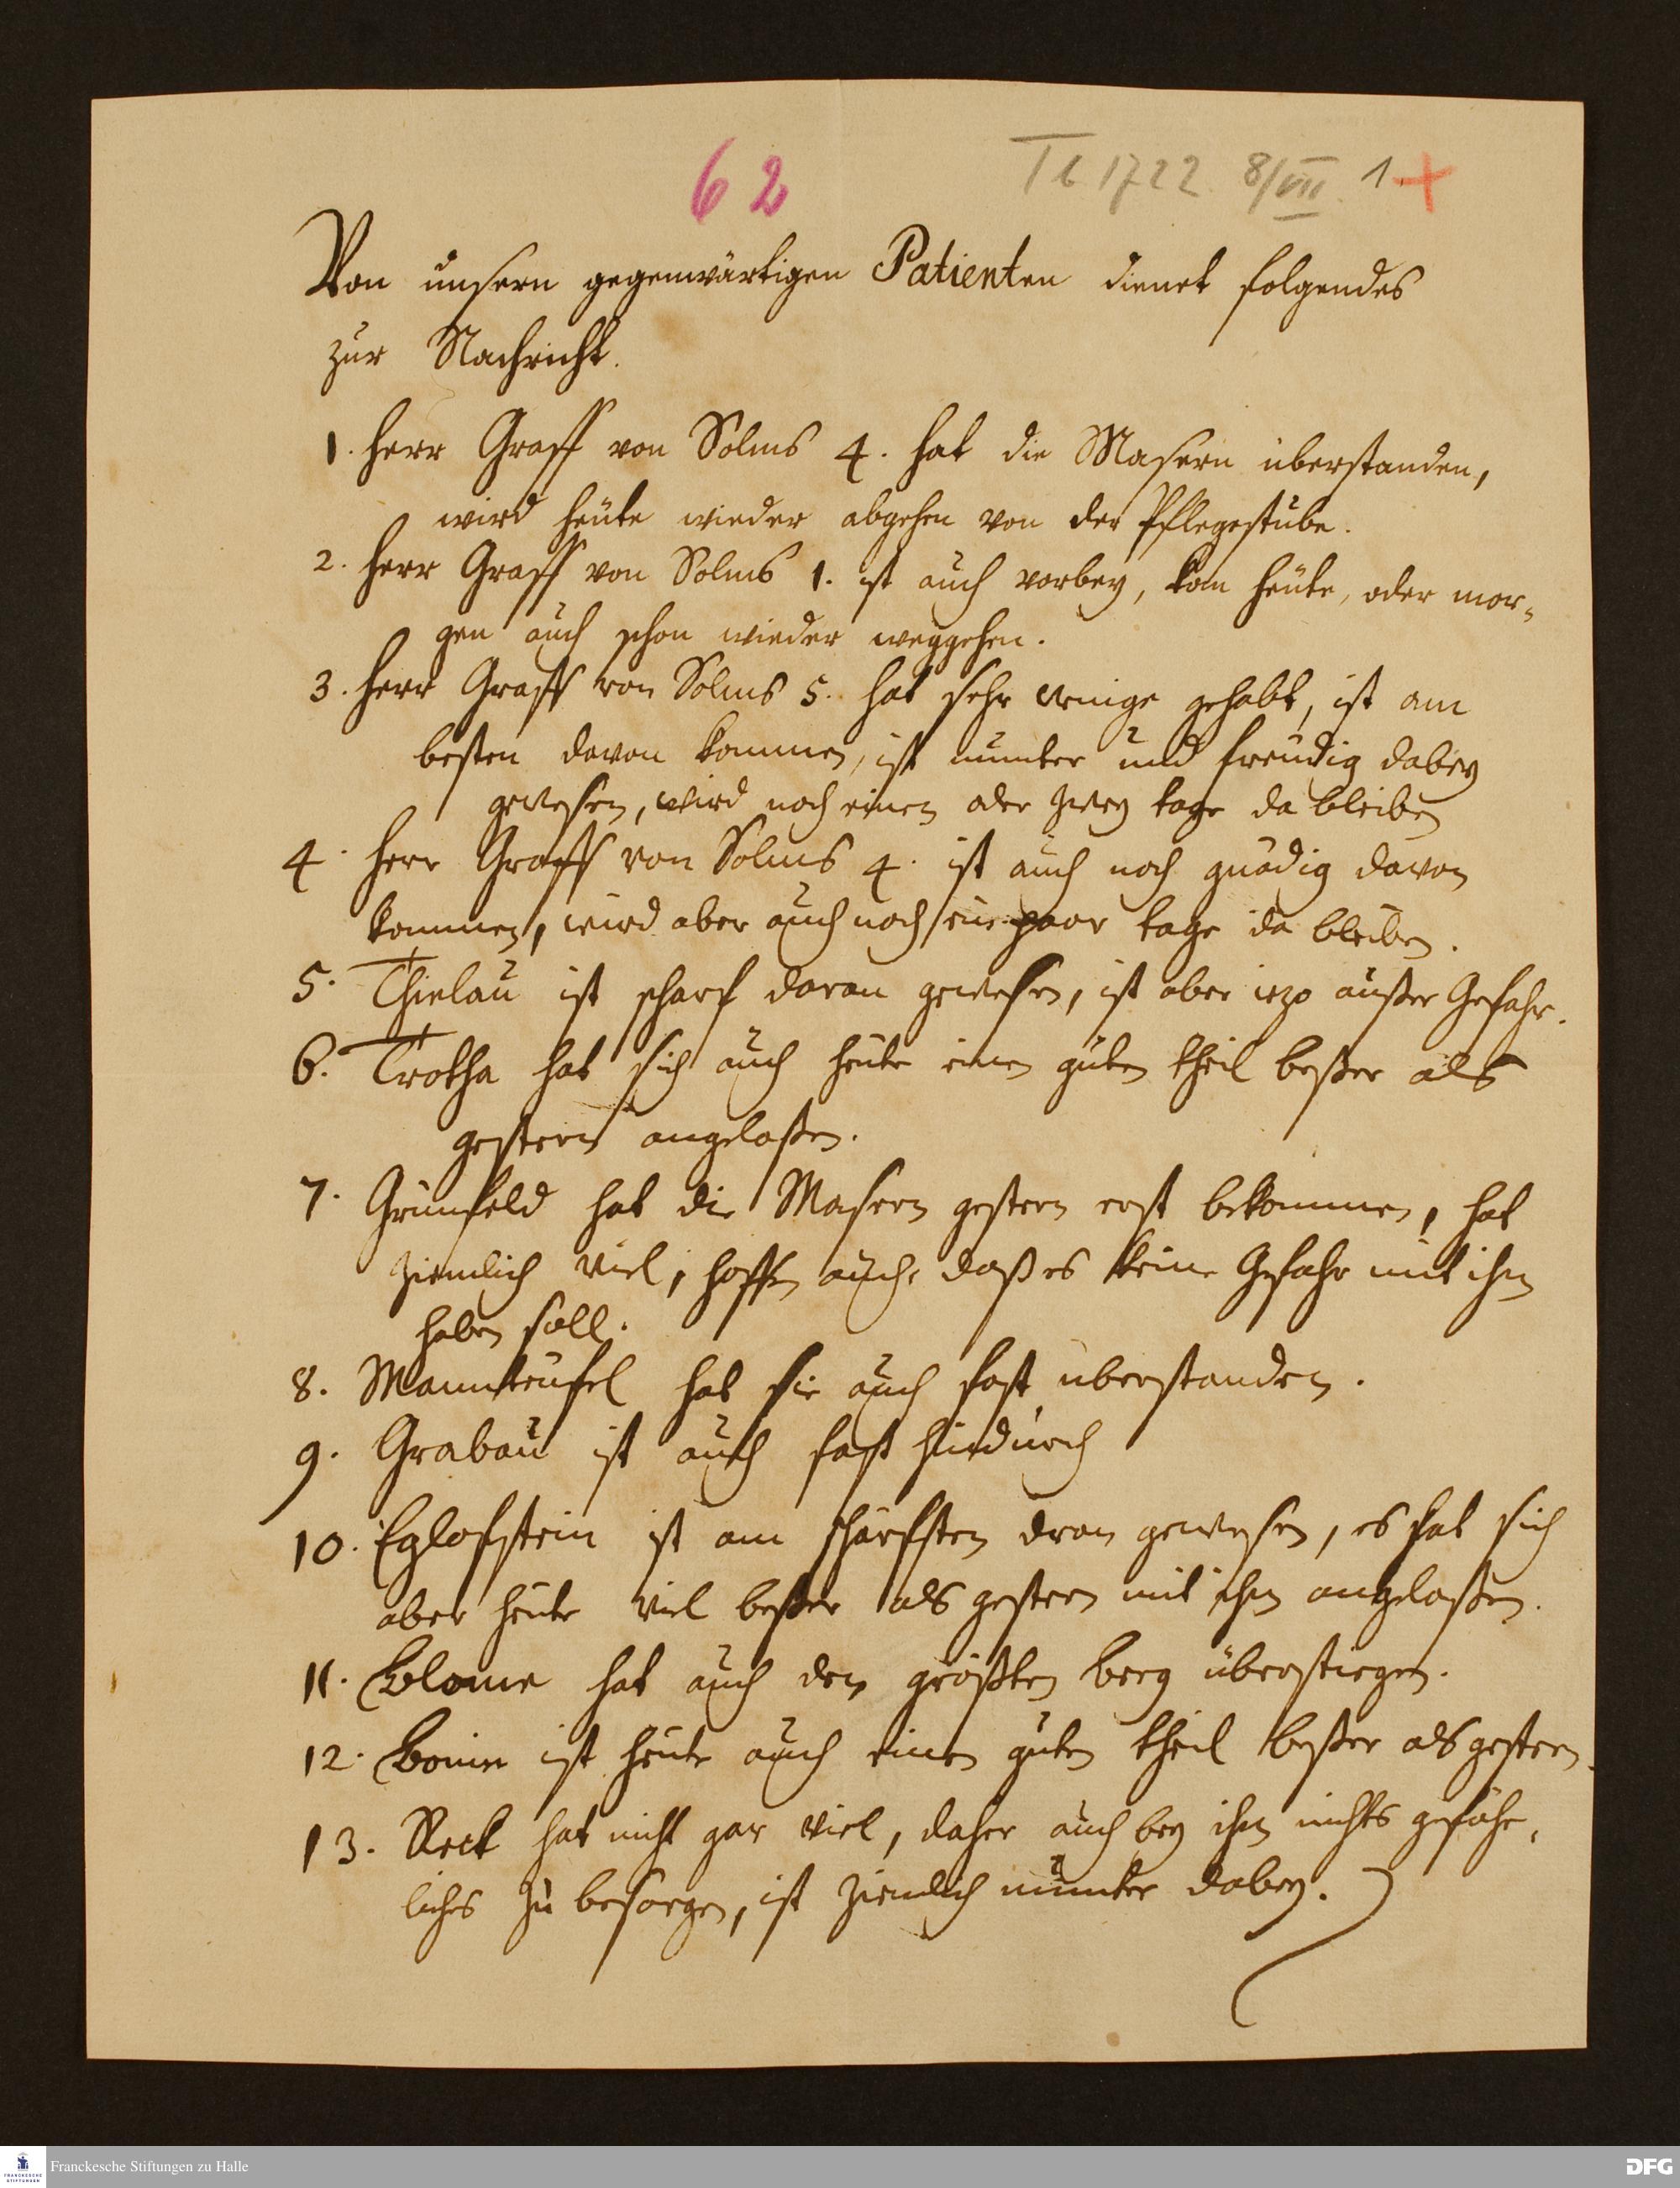 62
Tb 1722 8/VIII 1.+
Von unsern gegenwärtigen Patienten dienet folgendes
zur Nachricht.
1. Herr Graff von Solms 4. hat die Masern überstanden,
wird heüte wieder abgehen von der Pflegestube.
2. Herr Graff von Solms 1. ist auch vorbey, kan heüte, oder mor-
gen auch schon wieder weggehen.
3. Herr Graff von Solms 5. hat sehr wenige gehabt, ist am
besten davon kommen, ist munter und freudig dabey
gewesen, wird noch einen oder zwey tage da bleiben
4. Herr Graff von Solms 4. ist auch noch gnädig davon
kommen, wird aber auch noch ein paar tage da bleiben.
5. Thielau ist scharf daran gewesen, ist aber iezo außer Gefahr.
6. Trotha hat sich auch heute einen guten theil beßer als
gestern angelaßen.
7. Grünfeld hat die Masern gestern erst bekommen, hat
ziemlich viel, hoffen auch, daß es keine Gefahr mit ihm
haben soll.
8. Mannteufel hat sie auch fast überstanden.
9. Grabau ist auch fast hindurch
10. Eglofstein ist am schärfsten dran gewesen, es hat sich
aber heute viel beßer als gestern mit ihm angelaßen.
11. Blome hat auch den größten berg überstiegen.
12. Boine ist heute auch einen guten theil beßer als gestern.
13. Reck hat nicht gar viel, daher auch bey ihm nichts gefähr-
liches zu besorgen, ist ziemlich munter dabey.
Franckesche Stiftungen zu Halle
FRANCKESCHE STIFTUNGEN
DFG